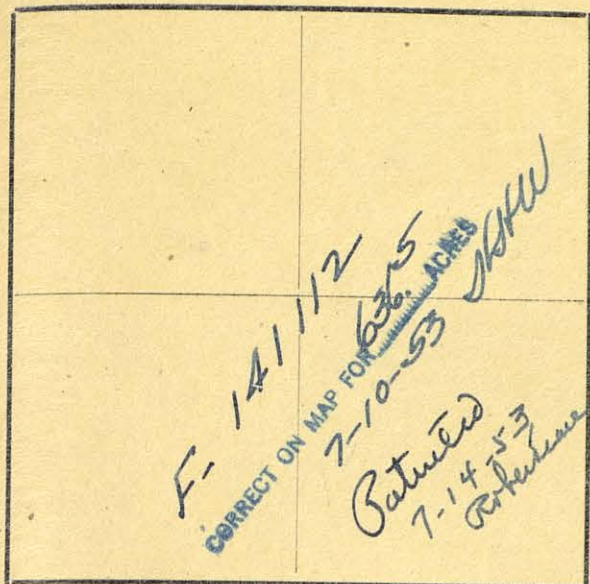 F- 141112
CORRECT ON MAP FOR 636.5 ACRES
7-10-53
Patented
7-14-53